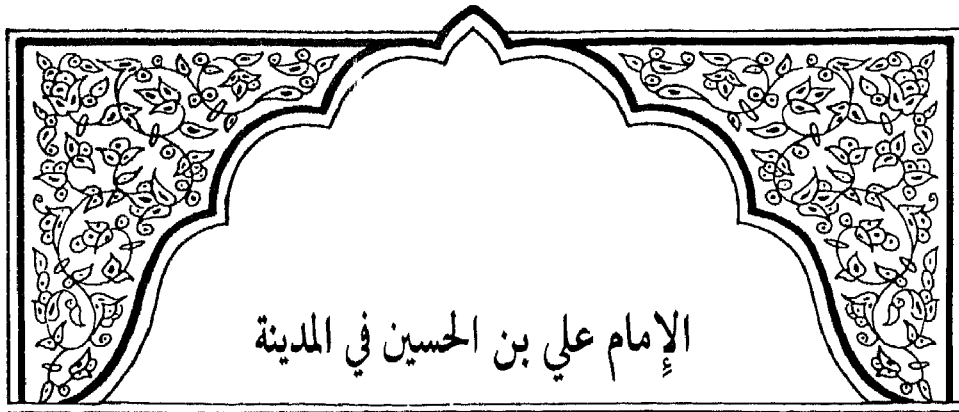 الإمام علي بن الحسين في المدينة